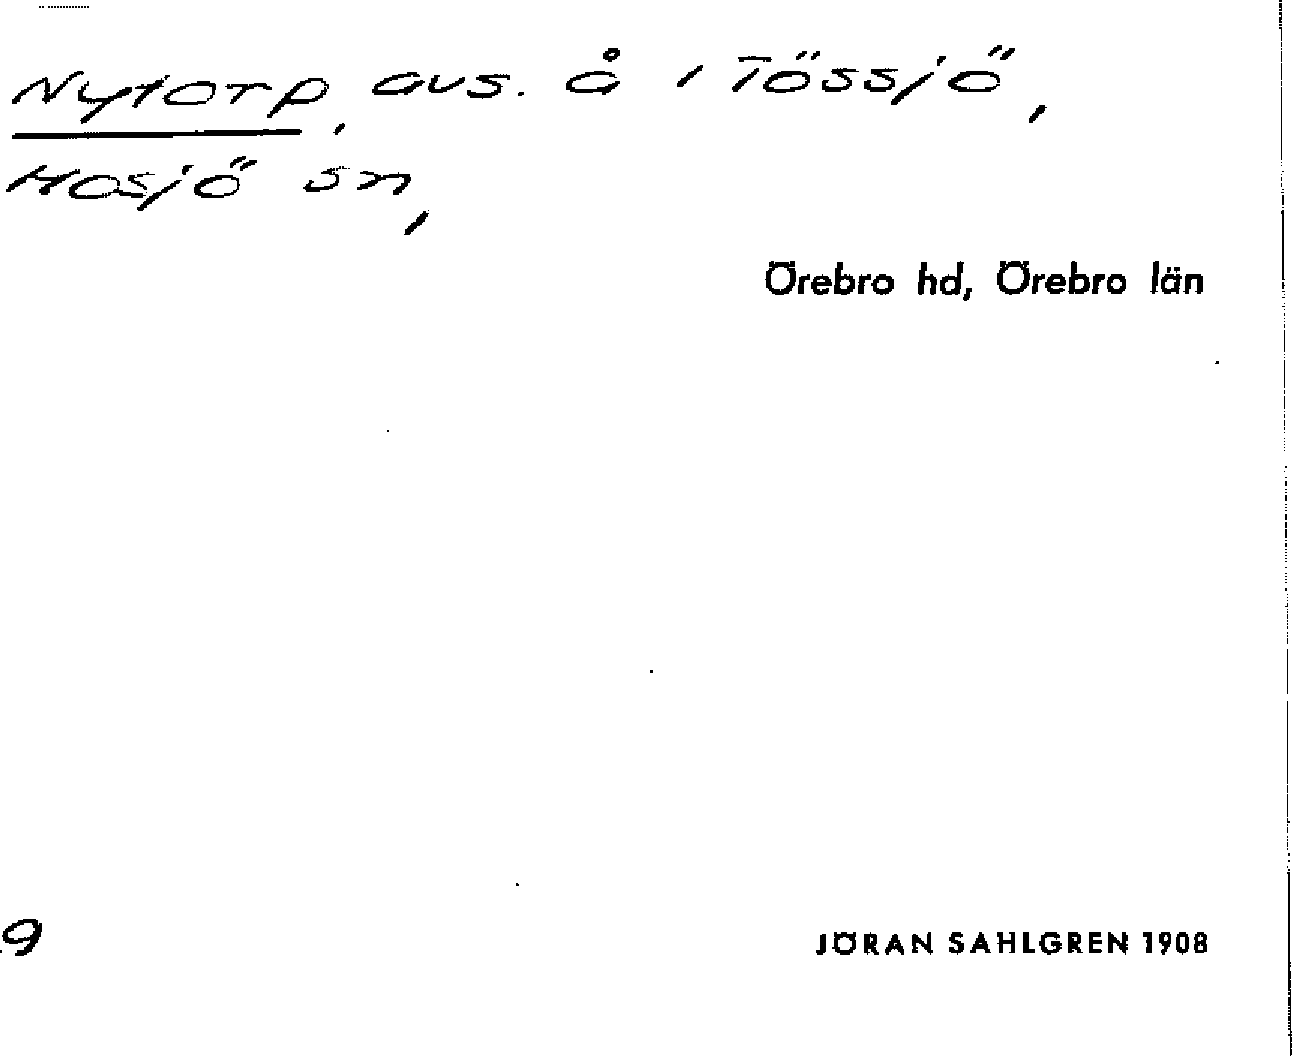 Nytorp, avs. å i Tössjö,
Mosjö sn,
Örebro hd, Örebro län
9
JÖRAN SAHLGREN 1908